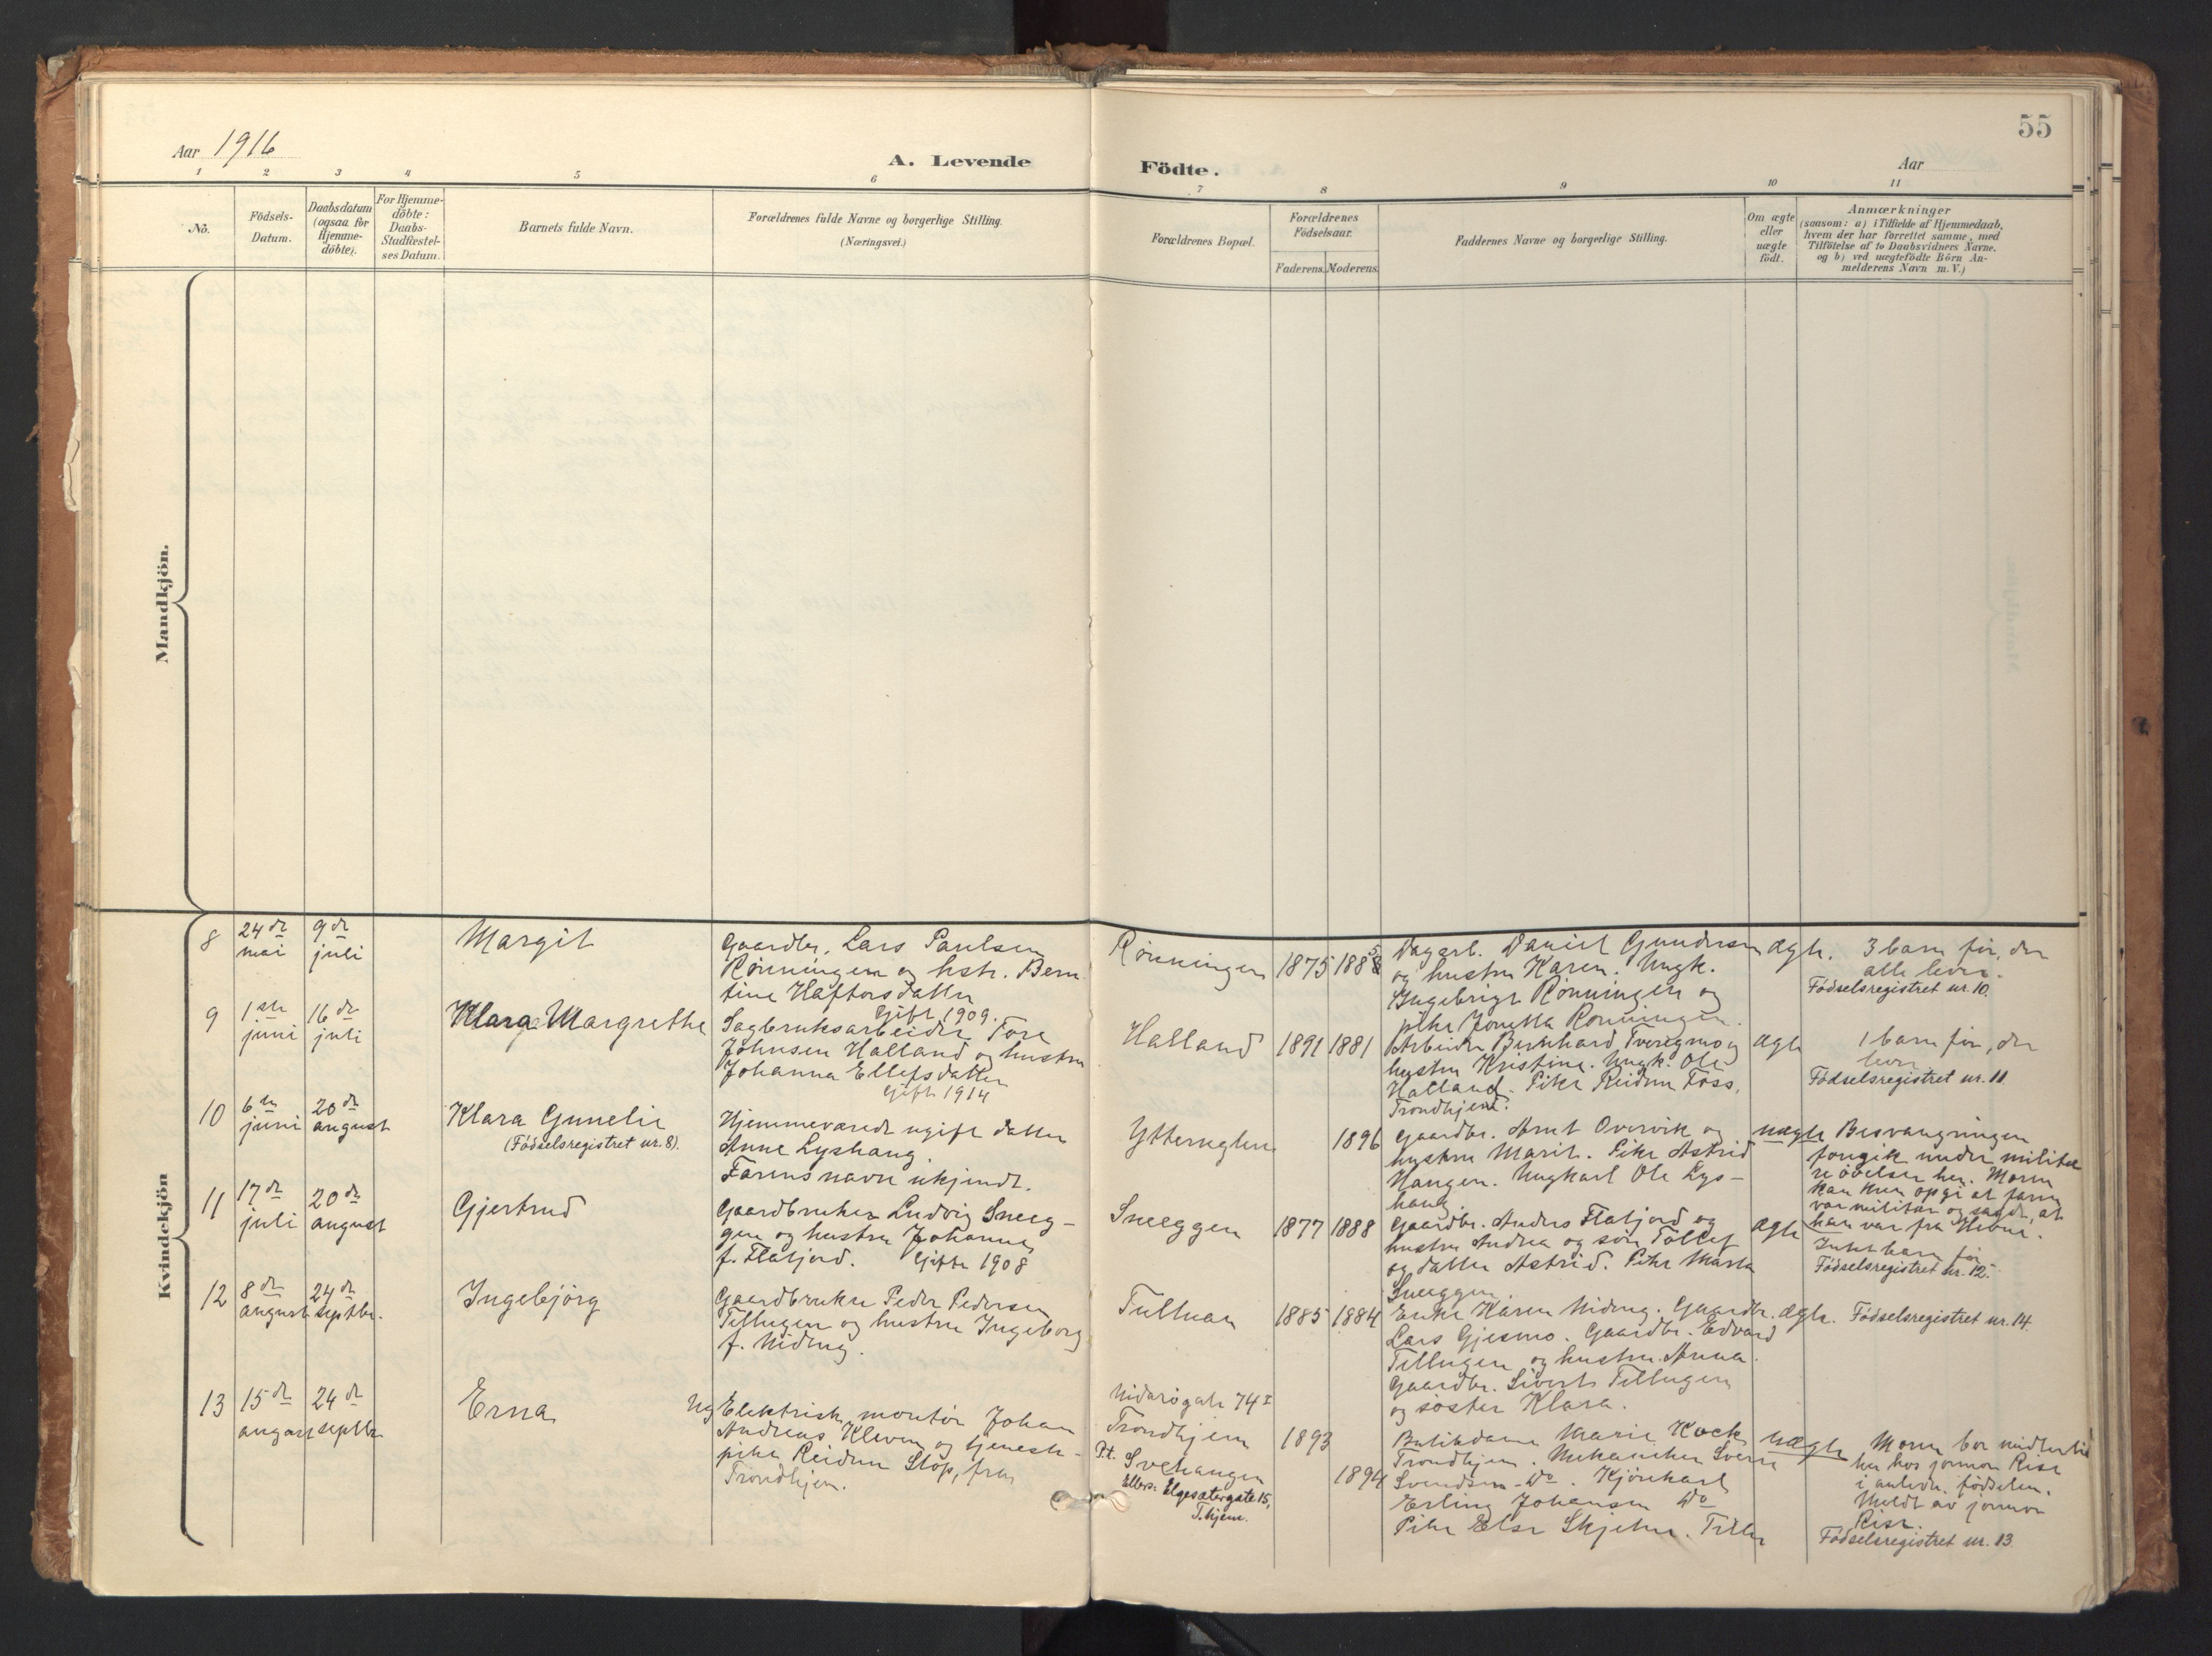 55
Aar 1916
A. Levende
Födte.
Aar
1 2 3 4 5 6 7 8 9 10 11
No.
Födsels-
Datum.
Daabsdatum
(ogsaa for
Hjemme-
döbte).
For Hjemme-
döbte:
Daabs-
Stadfæstel-
ses Datum.
Barnets fulde Navn.
Forældrenes fulde Navne og borgerlige Stilling.
(Næringsvei.)
Forældrenes Bopæl.
Forældrenes
Födselsaar.
Faderens. Moderens.
Faddernes Navne og borgerlige Stilling.
Om ægte
eller
uægte
födt.
Anmærkninger
(saasom: a) i Tilfælde af Hjemmedaab,
hvem der har forrettet samme, med
Tilföielse af to Daabsvidners Navne.
og b) ved uægtefödte Börn An-
melderens Navn m. V.)
Mandkjön.
Kvindekjön
8
24de
mai
9de
juli
Margit
Gaardbr. Lars Paulsen
Rönningen og hstr. Bern-
tine Haftorsdatter
Gift 1909.
Rönningen
1875
1885
Dagarb. Daniel Gundersen
og hustru Karen. Ungk.
Ingebrigt Rönningen og
pike Jonetta Rönningen.
ægte.
3 barn för, der
alle lever.
Födselsregistret nr. 10.
9
1ste
juni
16de
juli
Klara Margrethe
Sagbruksarbeider Tore
Johnsen Halland og hustru
Johanna Ellefsdatter
Gift 1914
Halland
1891
1881
Arbeider Bernhard Tveregmo og
hustru Kristine. Ungk. Ole
Halland. Pike Reidun Foss,
Trondhjem.
ægte
1 barn för, der
lever
Födselsregistret nr. 11.
10
6te
juni
20de
august
Klara Gunelie
(Födselsregistret nr. 8).
Hjemmeværende ugift datter
Anne Lyshaug.
Farens navn ukjendt.
Ytteruglen
1896
Gaardbr. Arnt Overvik og
hustru Marit. Pike Astrid
Haugen. Ungkarl Ole Lys-
haug.
uægte
Besvangringen
foregik under militæ
re övelser her. Moren
kan kun opgi at faren
var militær og sagde, at
han var fra Hevne.
11
17de
juli
20de
august
Gjertrud
Gaardbruker Ludvig Sneeg-
gen og hustru Johanna,
f. Flatjord. Gifte 1908
Sneeggen
1877
1888
Gaardbr. Anders Flatjord og
hustru Andrea og sön Tollef
og datter Astrid. Pike Marta
Sneeggen
ægte
Intet barn för
Födselsregistret nr. 12.
12
8de
august
24de
septbr.
Ingebjörg
Gaardbruker Peder Pedersen
Tellugen og hustru Ingeborg
f. Nideng.
Tulluan
1885
1884
Enke Karen Nideng. Gaardbr.
Lars Gjesmo. Gaardbr. Edvard
Tellugen og hustru Anna.
Gaardbr. Sivert Tellugen
og söster Klara.
ægte.
Födselsregistret nr. 14.
13
15de
august
24de
septbr
Erna
Ug Elektrisk montör Johan
Andreas Kleven og tjeneste-
pike Reidun Stop, fra
Trondhjem.
Nidarögate 74 I
Trondhjem
Pt. Svehaugen
Ellers: Elgesætergate 15,
T.hjem.
1893
1894
Butikdame Marie Kock
Trondhjem. Mekaniker Sverre
Svendsen Do. Kjörekarl
Erling Johansen Do
Pike Else Skjetne. Tiller
uægte
Moren bor midlertid
her hos jormor Rise
i anledn. födselen.
Meldt av jormor
Rise.
Födselsregistret nr. 13.